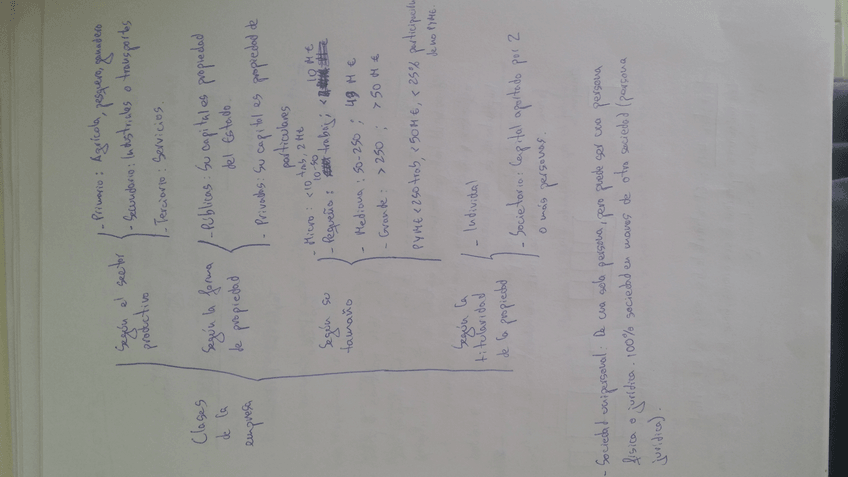 Clases
de la
empresa
Según el sector
productivo
- Primario: Agrícola, pesquero, ganadero
- Secundario: Industriales o transportes
- Terciario: Servicios.
Según la forma
de propiedad
- Públicas: Su capital es propiedad
del Estado.
- Privadas: Su capital es propiedad de
particulares
Según su
tamaño
- Micro: <10 trab, 2 M€
- Pequeña: 10-50 trabaj; < 10 M €
- Mediana: 50-250 ; M €
- Grande: > 250 ; > 50 M €
PYME < 250 trab, < 50 M€, < 25% participada
de no PYME.
Según la
titularidad
de la propiedad
- Individual
- Societario: Capital aportado por 2
o más personas.
- Sociedad unipersonal: De una sola persona, pero puede ser una persona
física o jurídica. 100% sociedad en manos de otra sociedad (persona
jurídica).